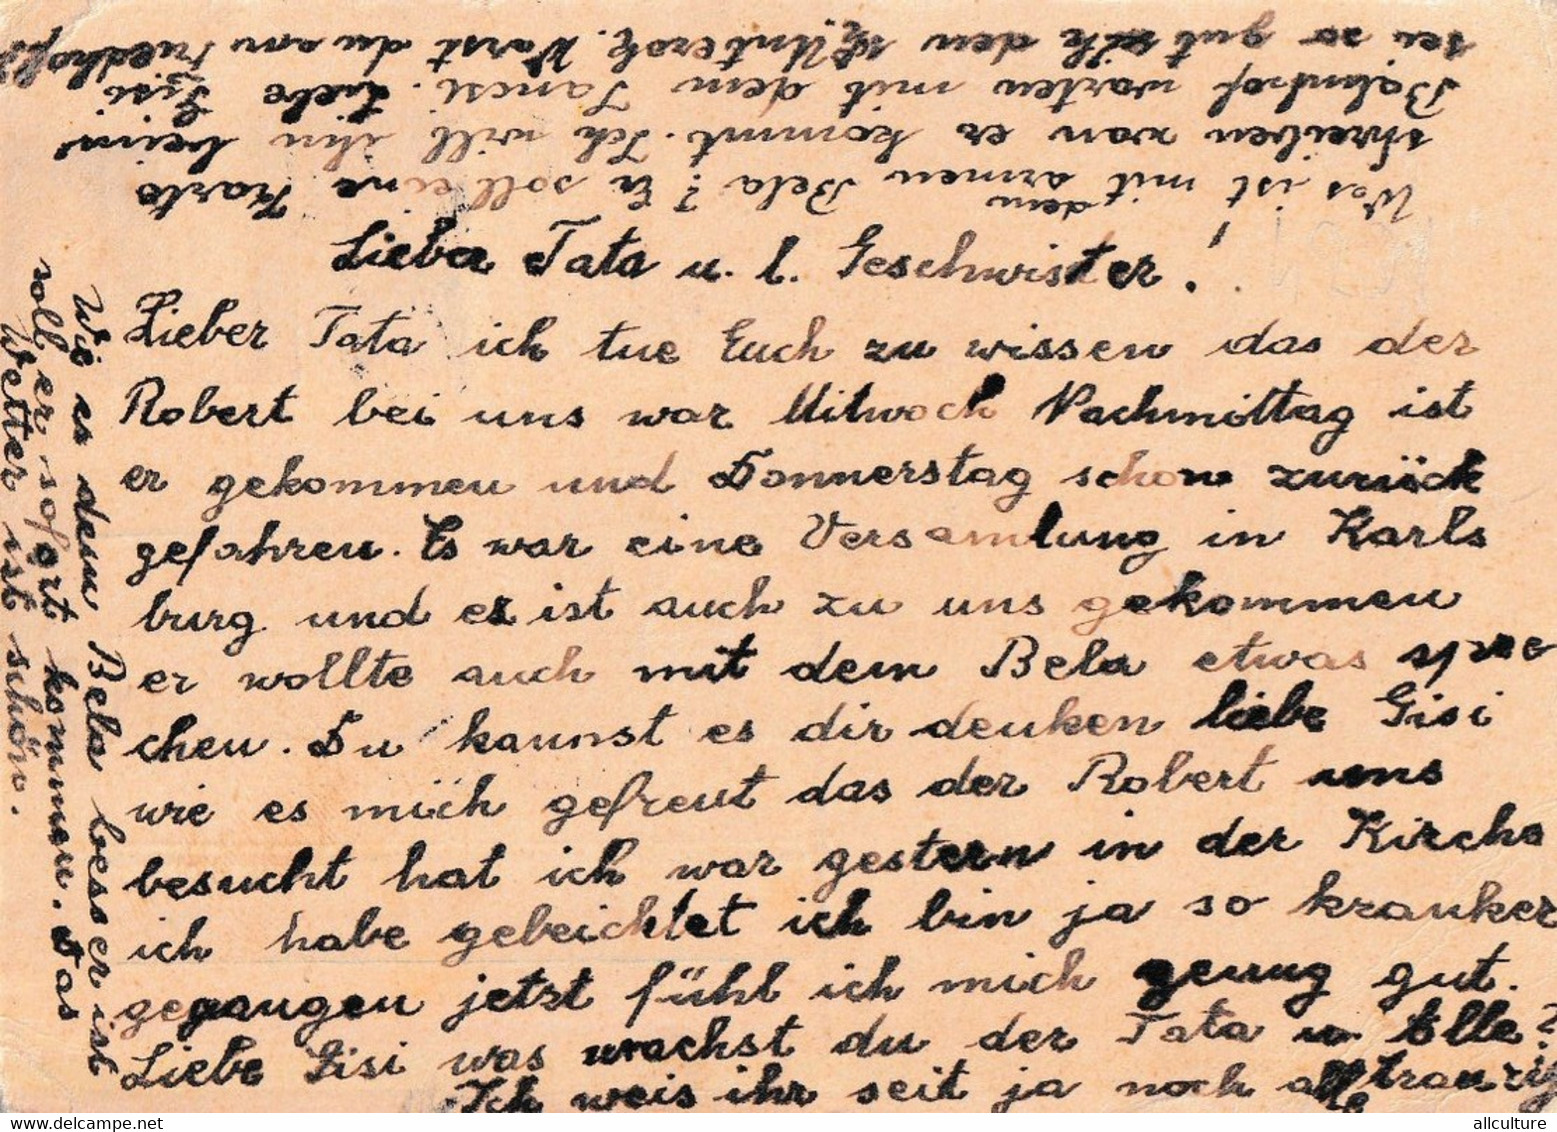 Lieber Tata u. l. Geschwister!
Lieber Tata ich tue Euch zu wissen das der
Robert bei uns war Mitwoch Nachmittag ist
er gekommen und Donnerstag schon zurück
gefahren. Es war eine Versamlung in Karls
burg und er ist auch zu uns gekommen
er wollte auch mit dem Bela etwas spre
chen. Du kannst es dir denken liebe Gisi
wie es mich gefreut das der Robert uns
besucht hat ich war gestern in der Kirche
ich habe gebeichtet ich bin ja so kranker
gegangen jetzt fühl ich mich genug gut.
Liebe Gisi was machst du der Tata u. Elle?
Ich weis ihr seit ja noch alle traurig
Was ist mit dem armen Bela? Er soll eine Karte
shreiben wan er kommt. Ich will ihn beim
Bahnhof warten mit dem Jancsi. Liebe Gisi
sei so gut den Unterok. Warst du am Friedhof?
Wie es dem Bela besser ist
soll er sofort kommen. Das
Wetter ist schön.
allculture